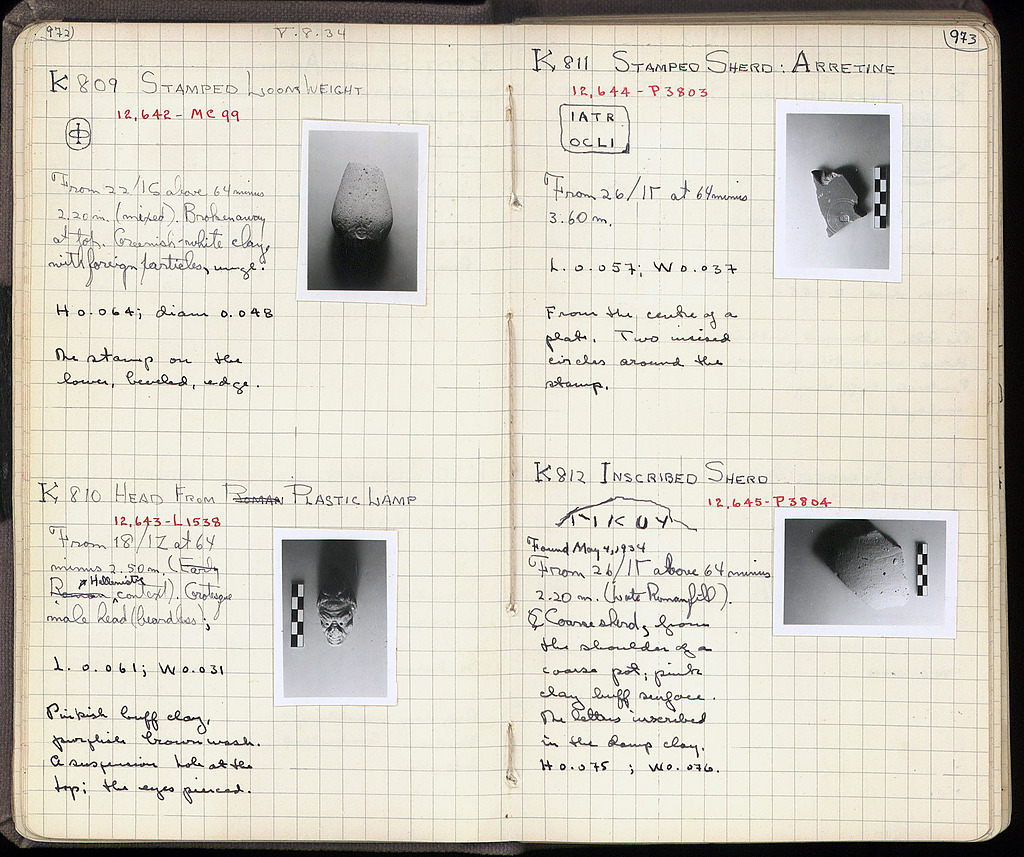 972
V.8.34
K 809 STAMPED LOOMWEIGHT
12,642 - MC 99
From 22/ΙϚ above 64 minus
2.20 m. (mixed). Broken away
at top. Greenish-white clay,
with foreign particles,
H 0.064; diam 0.048
The stamp on the
lower, beveled, edge.
K 810 HEAD FROM ROMAN PLASTIC LAMP
12,643 - L1538
From 18/ΙΖ at 64
minus 2.50 m. (Early
Roman Hellenistic context). Grotesque
male head (beardless);
L. 0.061; W 0.031
Pinkish buff clay,
purplish brown wash.
A suspension hole at the
top; the eyes pierced.
973
K 811 STAMPED SHERD: ARRETINE
12,644 - P3803
IATR
OCLI
From 26/ΙΓ at 64 minus
3.60 m.
L. 0.057; W 0.037
From the centre of a
plate. Two incised
circles around the
stamp.
K 812 INSCRIBED SHERD
12,645 - P3804
Found May 4, 1934
From 26/ΙΓ above 64 minus
2.20 m. (Late Roman fill).
Coarse sherd, from
the shoulder of a
coarse pot; pink
clay buff surface.
The letters inscribed
in the damp clay.
H 0.075 ; W 0.076.